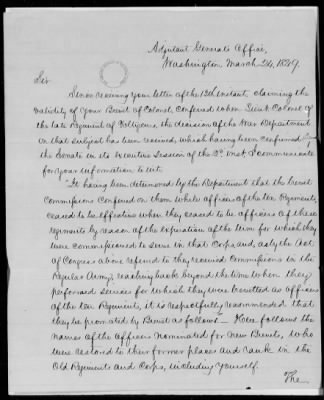 Adjutant General's Office,
Washington, March 24, 1849.
Sir
Since receiving your letter of the 13th instant, claiming the
validity of your Brevet of Colonel, conferred when Lieut. Colonel of
the late Regiment of Voltigeurs, the decision of the War Department
on that subject has been received, which having been confirmed by
the Senate in its Executive Session of the inst, I communicate
for your information to wit:
"It having been determined by the Department that the Brevet
Commissions conferred on them while officers of the ten Regiments,
ceased to be effective when they ceased to be officers of these
regiments by reason of the expiration of the term for which they
were commissioned to serve in that Corps and, as by the Act
of Congress above referred to they received Commissions in the
Regular Army, reaching back beyond the time when they
performed services for which they were brevetted as officers
of the ten Regiments, it is respectfully recommended that
they be promoted by Brevet as follows" – Here follows the
names of the officers nominated for New Brevets, who
were restored to their former places and rank in the
Old Regiments and Corps, including yourself.
The